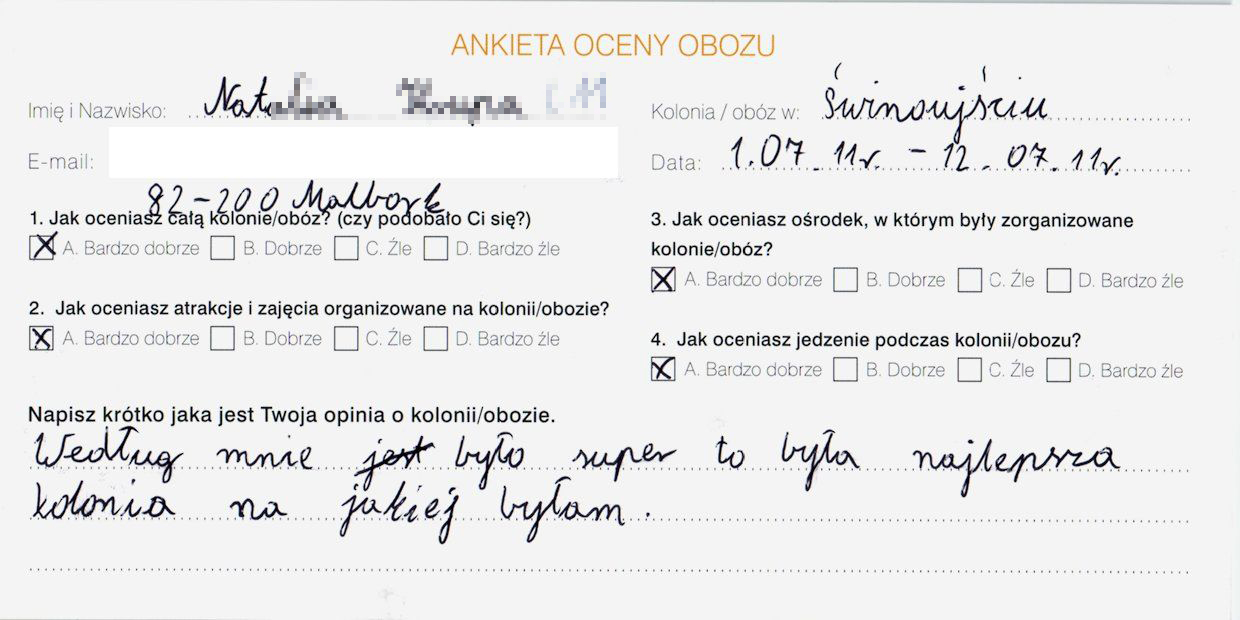 ANKIETA OCENY OBOZU
Imię i Nazwisko:
Kolonia / obóz w: Świnoujściu
E-mail:
Data: 1.07 11r. – 12.07.11r.
82-200 Malbork
1. Jak oceniasz całą kolonie/obóz? (czy podobało Ci się?)
A. Bardzo dobrze B. Dobrze C. Źle D. Bardzo źle
2. Jak oceniasz atrakcje i zajęcia organizowane na kolonii/obozie?
A. Bardzo dobrze B. Dobrze C. Źle D. Bardzo źle
3. Jak oceniasz ośrodek, w którym były zorganizowane
kolonie/obóz?
A. Bardzo dobrze B. Dobrze C. Źle D. Bardzo źle
4. Jak oceniasz jedzenie podczas kolonii/obozu?
A. Bardzo dobrze B. Dobrze C. Źle D. Bardzo źle
Napisz krótko jaka jest Twoja opinia o kolonii/obozie.
Według mnie jest było super to była najlepsza
kolonia na jakiej byłam.